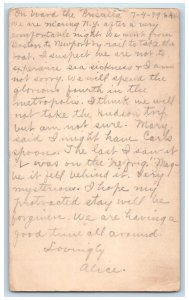 On board the Priscilla 7-4-99
We are nearing N.Y. after a very
comfortable night. We went from
Boston to Newport by rail to take the
boat. I suspect we are not to
experience sea sickness & I am
not sorry. We will spend the
glorious fourth in the
metropolis. I think we will
not take the Hudson trip
but am not sure. Mary
said I might have Earl's
spoon. The last I saw of
it was on the "refrig." May-
be it fell behind it. Very
mysterious. I hope my
protracted stay will be
forgiven. We are having a
good time all around.
Lovingly
Alice.